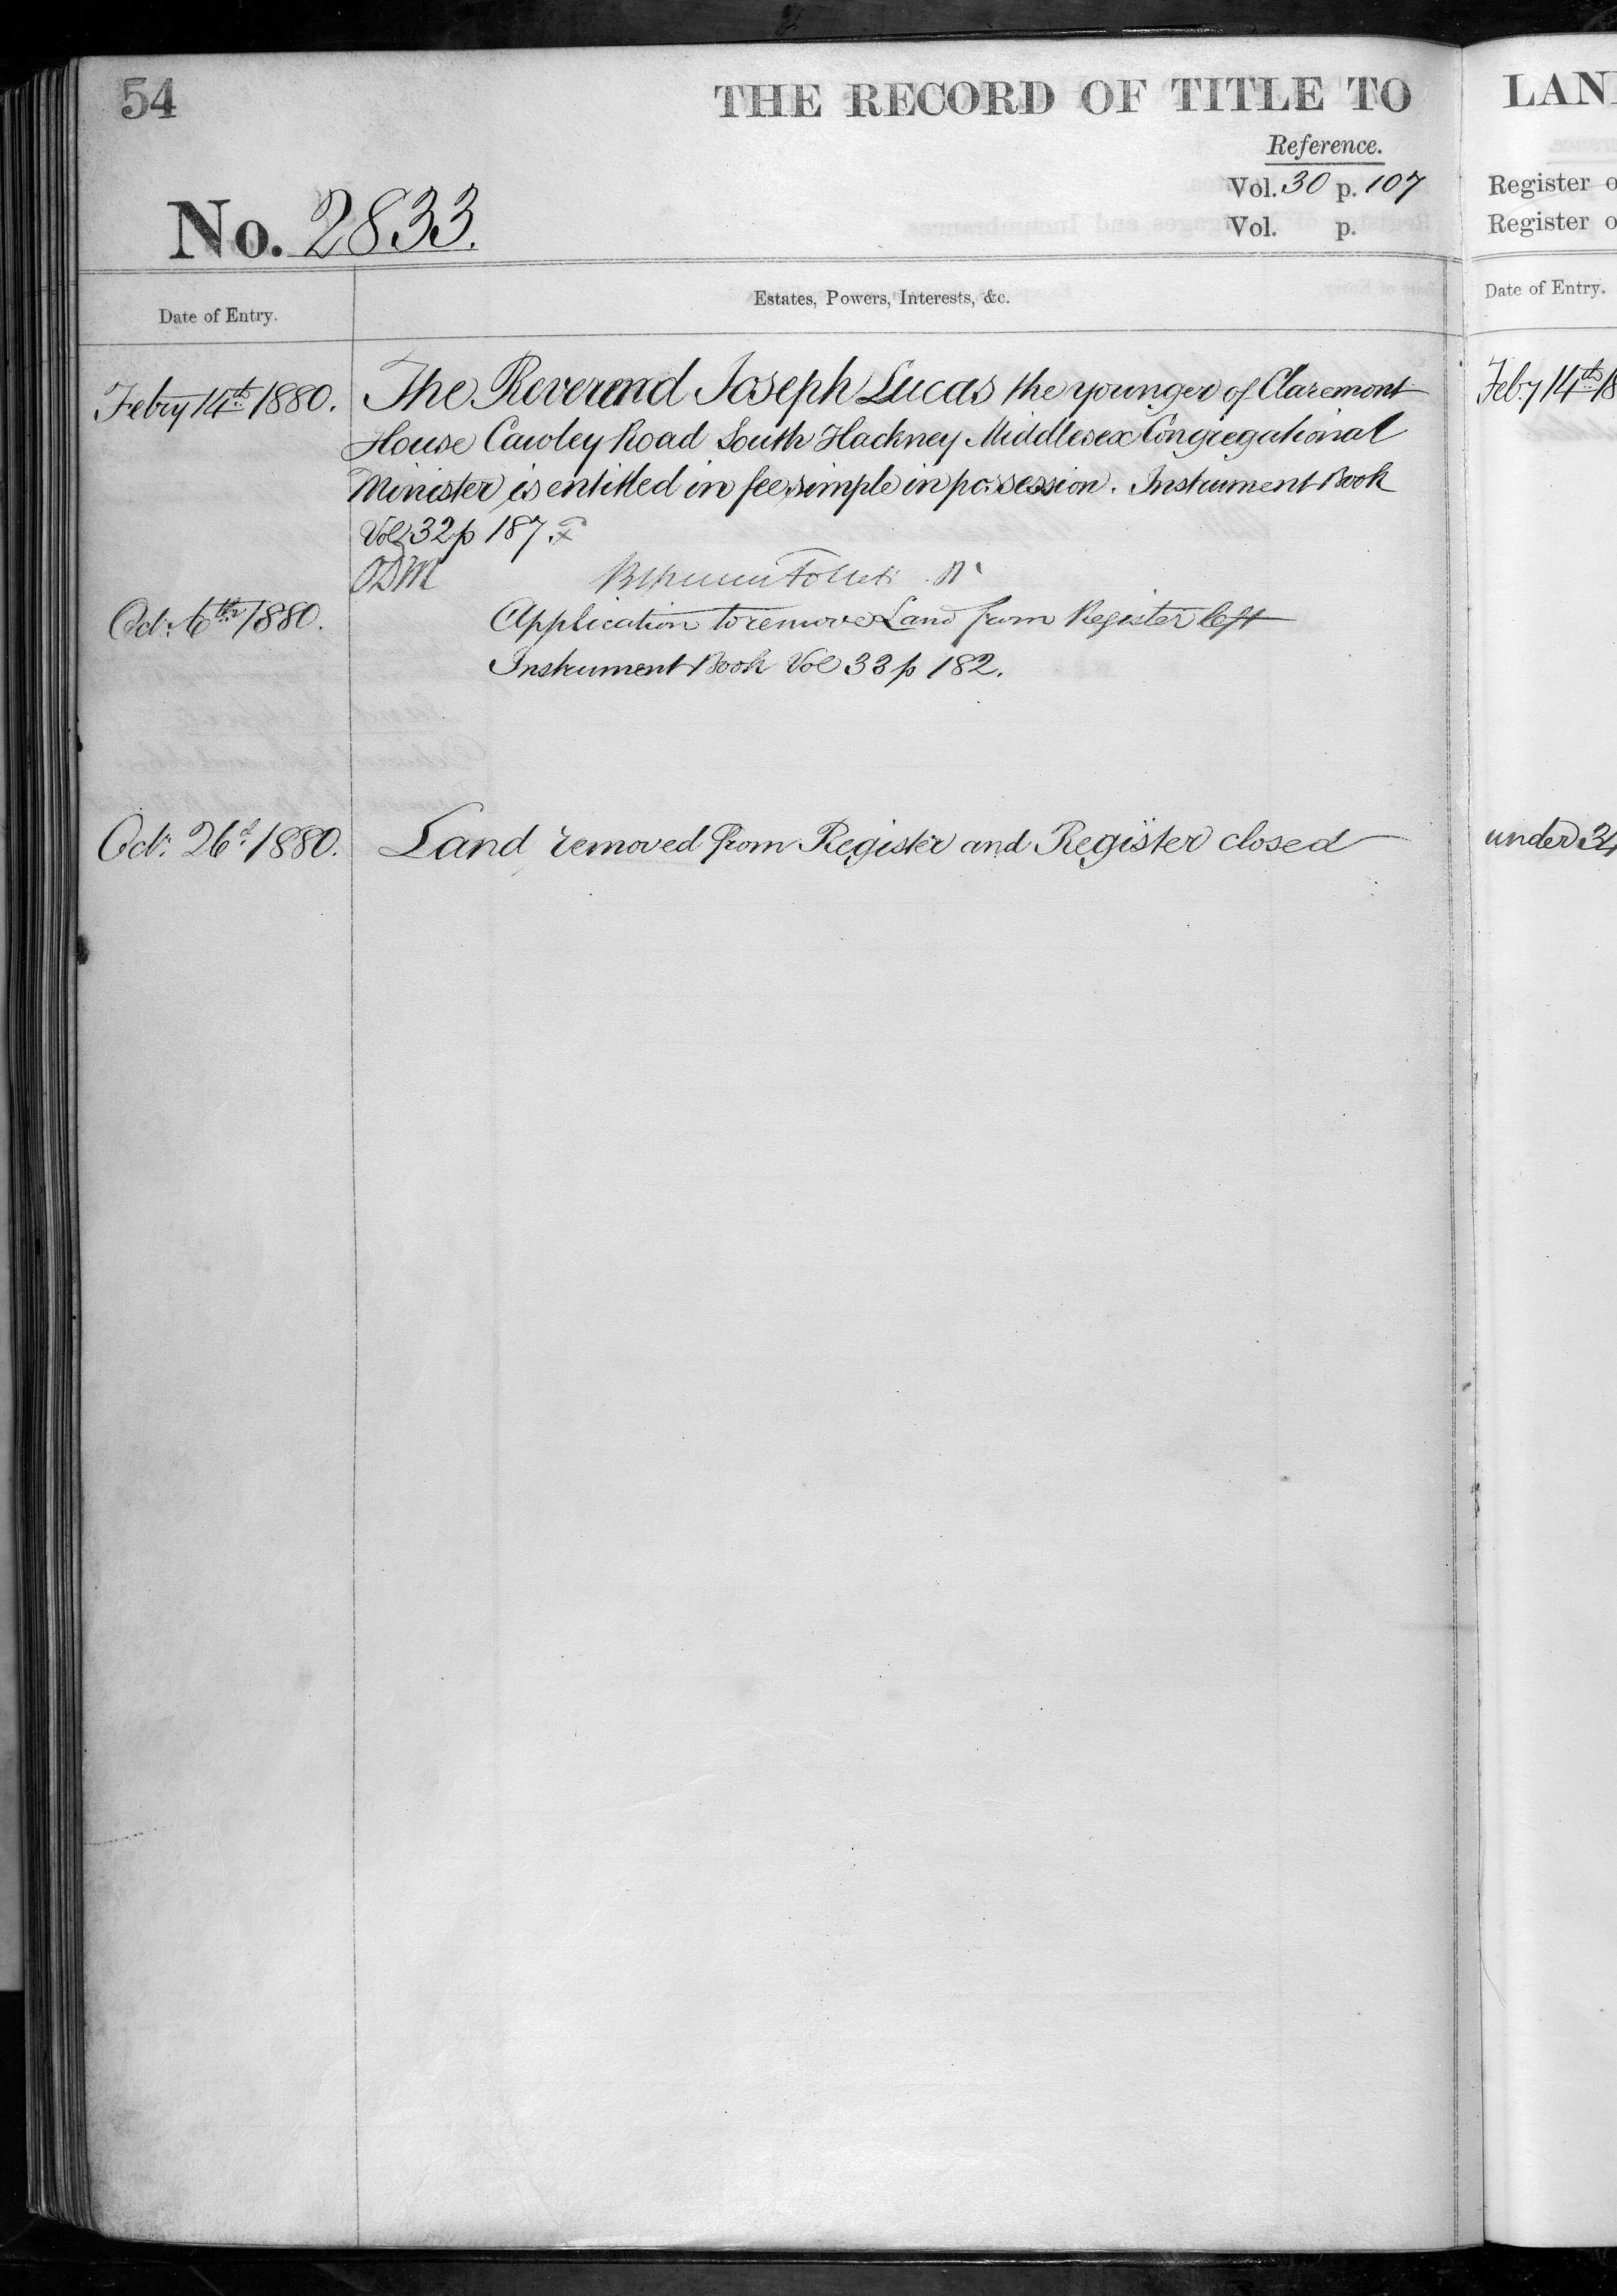 54
THE RECORD OF TITLE TO
Reference.
Vol. 30 p. 107
Vol. p.
No. 2833.
Date of Entry.
Estates, Powers, Interests, &c.
Febry 14th 1880.
The Reverend Joseph Lucas the younger of Claremont
House Cawley Road South Hackney Middlesex Congregational
Minister is entitled in fee simple in possession. Instrument Book
Vol 32 p 187.
ODM
Octr 6th 1880.
Application to remove Land from Register left
Instrument Book Vol 33 p 182.
Octr 26th 1880.
Land removed from Register and Register closed
LAN
Register o
Register o
Date of Entry.
Feby 14th 18
under 34